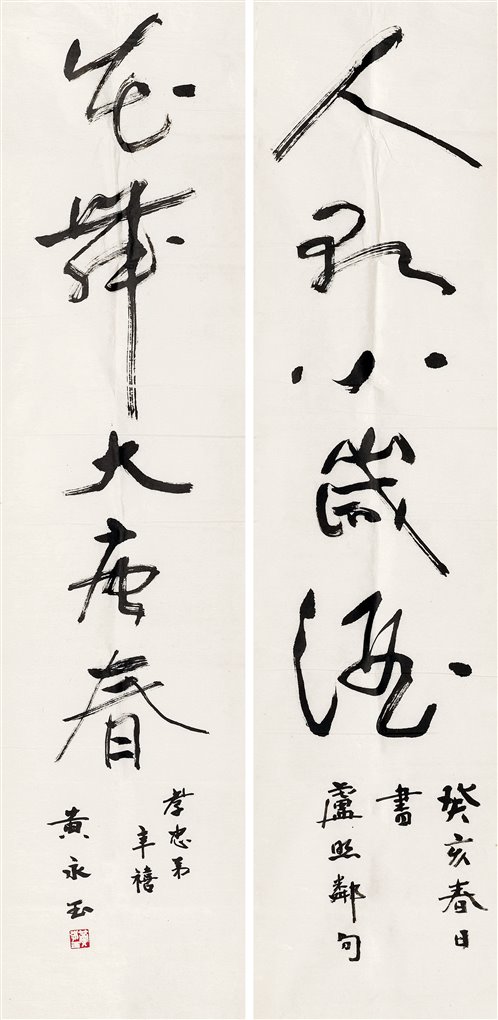 人歌小歲酒
癸亥春日
書
盧照鄰句
花舞大唐春
孝忠弟
年禧
黄永玉